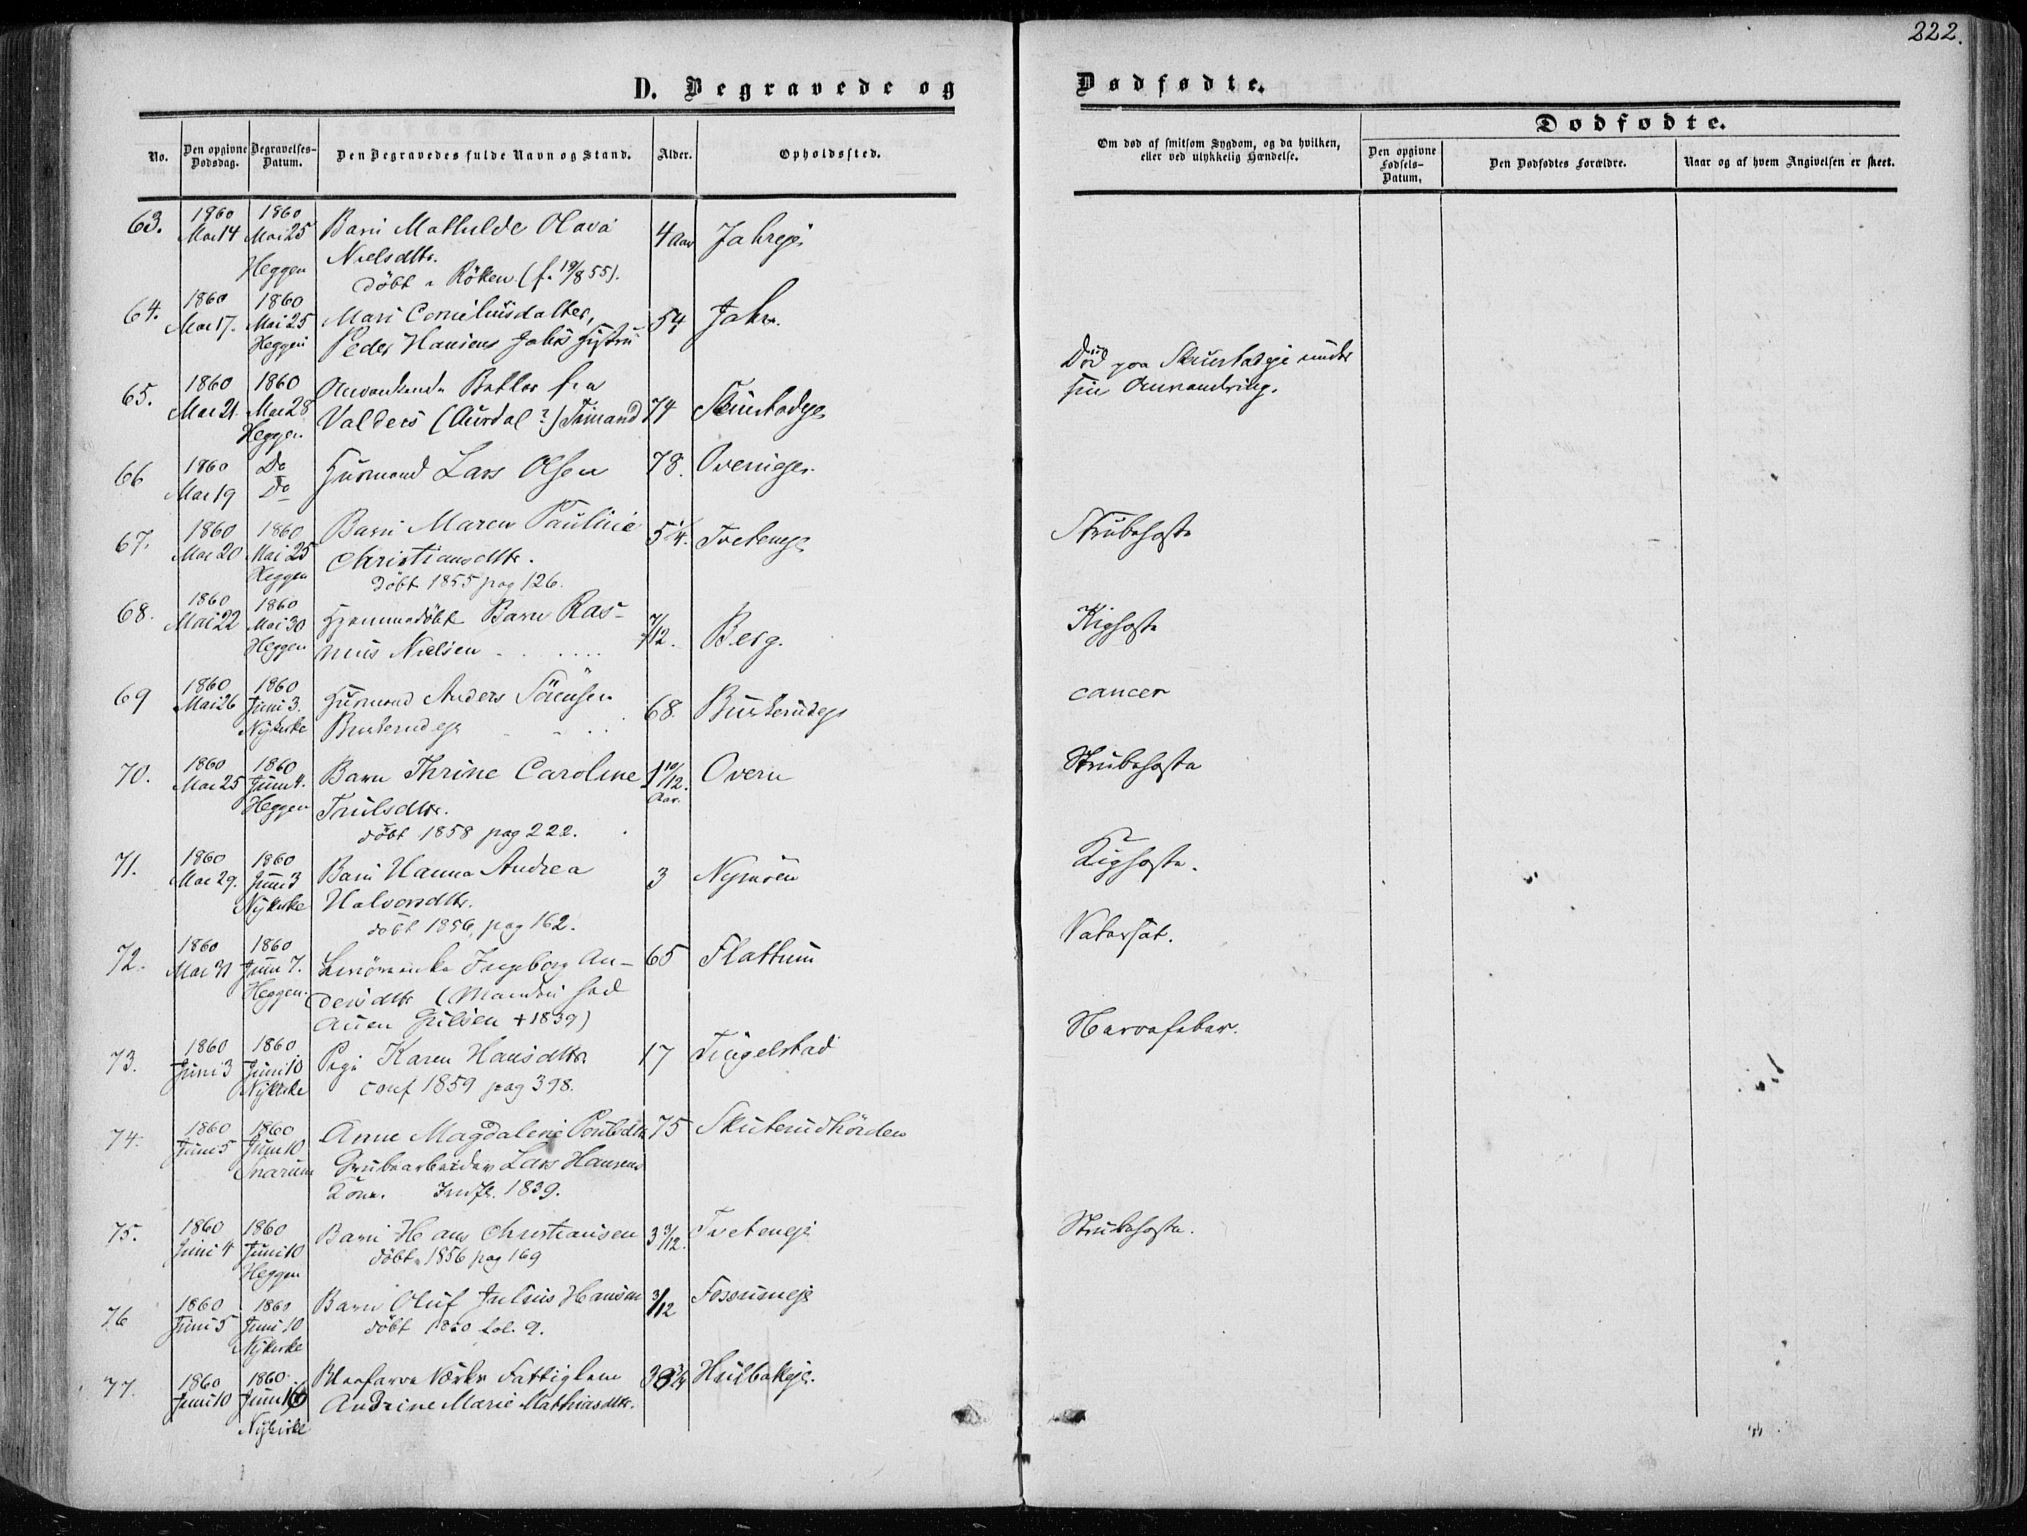 222.
D. Begravede og Dødfødte.
No.
Den opgivne Dødsdag.
Begravelses-Datum.
Den Begravedes fulde Navn og Stand.
Alder.
Opholdssted.
Om død af smitsom Sygdom, og da hvilken, eller ved ulykkelig Hændelse.
Dødfødte.
Den opgivne Fødsels-Datum.
Den Dødfødtes Forældre.
Naar og af hvem Angivelsen er skeet.
63. 1860 Mai 14 1860 Mai 25 Heggen
Barn Mathilde Olava 4 Aar Jahreje
Nielsdtr.
döbt i Röken (f. 19/8 55).
64. 1860 Mai 17. 1860 Mai 25 Heggen
Mari Corneliusdatter, 54 Jahr.
Peder Hansens Jahrs Hustru
65. 1860 Mai 21. 1860 Mai 28 Heggen
Omvankende Betler fra
Valders (Aurdal?) 74 Skurstadeje
Död paa Skurstadeje under
sin Omvandring.
66 1860 Mai 19 Do Do
Huusmand Lars Olsen 78. Overneje.
67. 1860 Mai 20 1860 Mai 25 Heggen
Barn Maren Pauline 5 1/4. Tveteneje
Christiansdtr.
Döbt 1855 pag 126.
Strubehoste
68. 1860 Mai 22 1860 Mai 30 Heggen
Hjemmedöbt Barn Ras-
mus Nielsen 7/12. Berg.
Kighoste
69 1860 Mai 26 1860 Juni 3. Nykirke
Huusmand Anders Sörensen
Buskerudeje 68. Buskerudeje
cancer
70. 1860 Mai 25 1860 Juni 4. Heggen
Barn Thrine Caroline 1 10/12. Aar. Overn
Trulsdtr.
döbt 1858 pag 222.
Strubehoste
71. 1860 Mai 29. 1860 Juni 3 Nykirke
Barn Hanna Andrea 3 Nymoen
Halvorsdtr.
döbt 1856, pag 162.
Kighoste.
72. 1860 Mai 31 1860 Juni 7. Heggen.
Ingeborg An- 65 Flattum
dersdtr (Manden hed
+ 1839)
Vatersot.
73. 1860 Juni 3 1860 Juni 10 Nykirke
Pige Karen Hansdtr. 17 Tingelstad
conf 1859 pag 398.
Nervefeber.
74. 1860 Juni 5 1860 Juni 10 Snarum
Anne Magdalene Poulsdtr 75
Grubearbeider Lars Hansens
Kone. Indfl. 1839.
75. 1860 Juni 4 1860 Juni 10 Heggen
Barn Hans Christiansen 3 3/12. Tveteneje
döbt 1856 pag 169
Strubehoste.
76 1860 Juni 5 1860 Juni 10 Nykirke
Barn Oluf Julius Hansen 3/12 Fossumeje
döbt 1860 fol. 9.
77. 1860 Juni 10 1860. Nykirke
Blaafarve Værks Fattiglem Hulbakeje.
Andrine Marie Mathiasdtr.